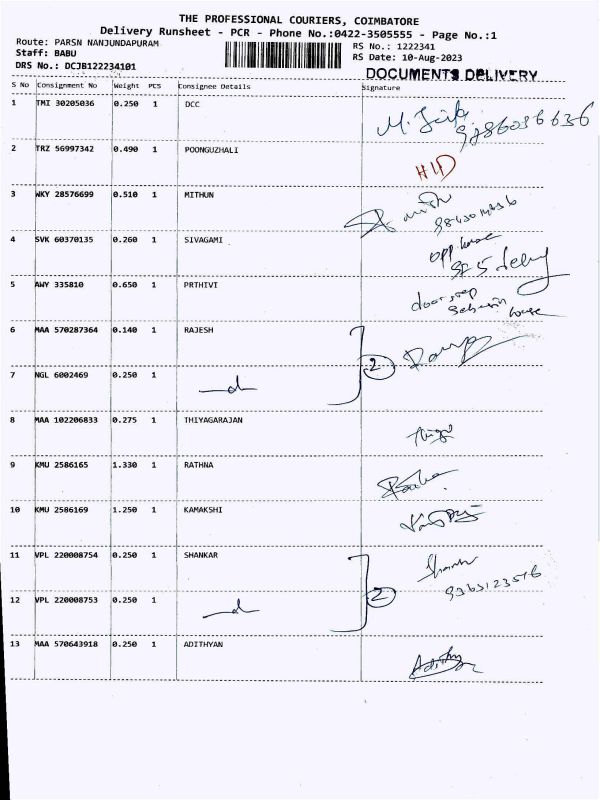 THE PROFESSIONAL COURIERS, COIMBATORE
Delivery Runsheet - PCR - Phone No.:0422-3505555 - Page No.:1
Route: PARSN NANJUNDAPURAM
RS No.: 1222341
Staff: BABU
RS Date: 10-Aug-2023
DRS No.: DCJB122234101
DOCUMENTS DELIVERY
S No Consignment No Weight PCS Consignee Details Signature
1 TMI 30205036 0.250 1 DCC
2 TRZ 56997342 0.490 1 POONGUZHALI HID
3 WKY 28576699 0.510 1 MITHUN
4 SVK 60370135 0.260 1 SIVAGAMI
opp house
5 AWY 335810 0.650 1 PRTHIVI
door step
house
6 MAA 570287364 0.140 1 RAJESH
2
7 NGL 6002469 0.250 1
8 MAA 102206833 0.275 1 THIYAGARAJAN
9 KMU 2586165 1.330 1 RATHNA
10 KMU 2586169 1.250 1 KAMAKSHI
11 VPL 220008754 0.250 1 SHANKAR
2
12 VPL 220008753 0.250 1
13 MAA 570643918 0.250 1 ADITHYAN